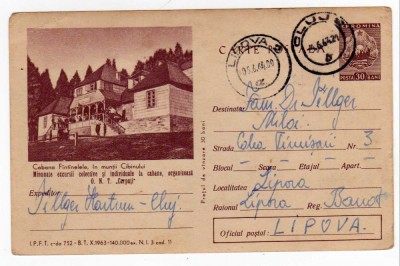 LIPOVA
CLUJ
R.P. ROMINA
POSTA 30 BANI
Cabana Fîntînelele, în munții Cibinului
Minunate excursii colective și individuale la cabane, organizează
O. N. T. „Carpați”
Expeditor
Hartmun - Cluj
I.P.F.T. c-da 752 - B.T. X.1963-140.000 ex. N.I. 3 cod. 11
Prețul de vînzare 30 bani
Destinatar Fam. Dr
Strada Calea Timișorii Nr. 3
Blocul Scara Etajul Apart.
Localitatea Lipova
Raionul Lipova Reg. Banat
Oficiul poștal: LIPOVA